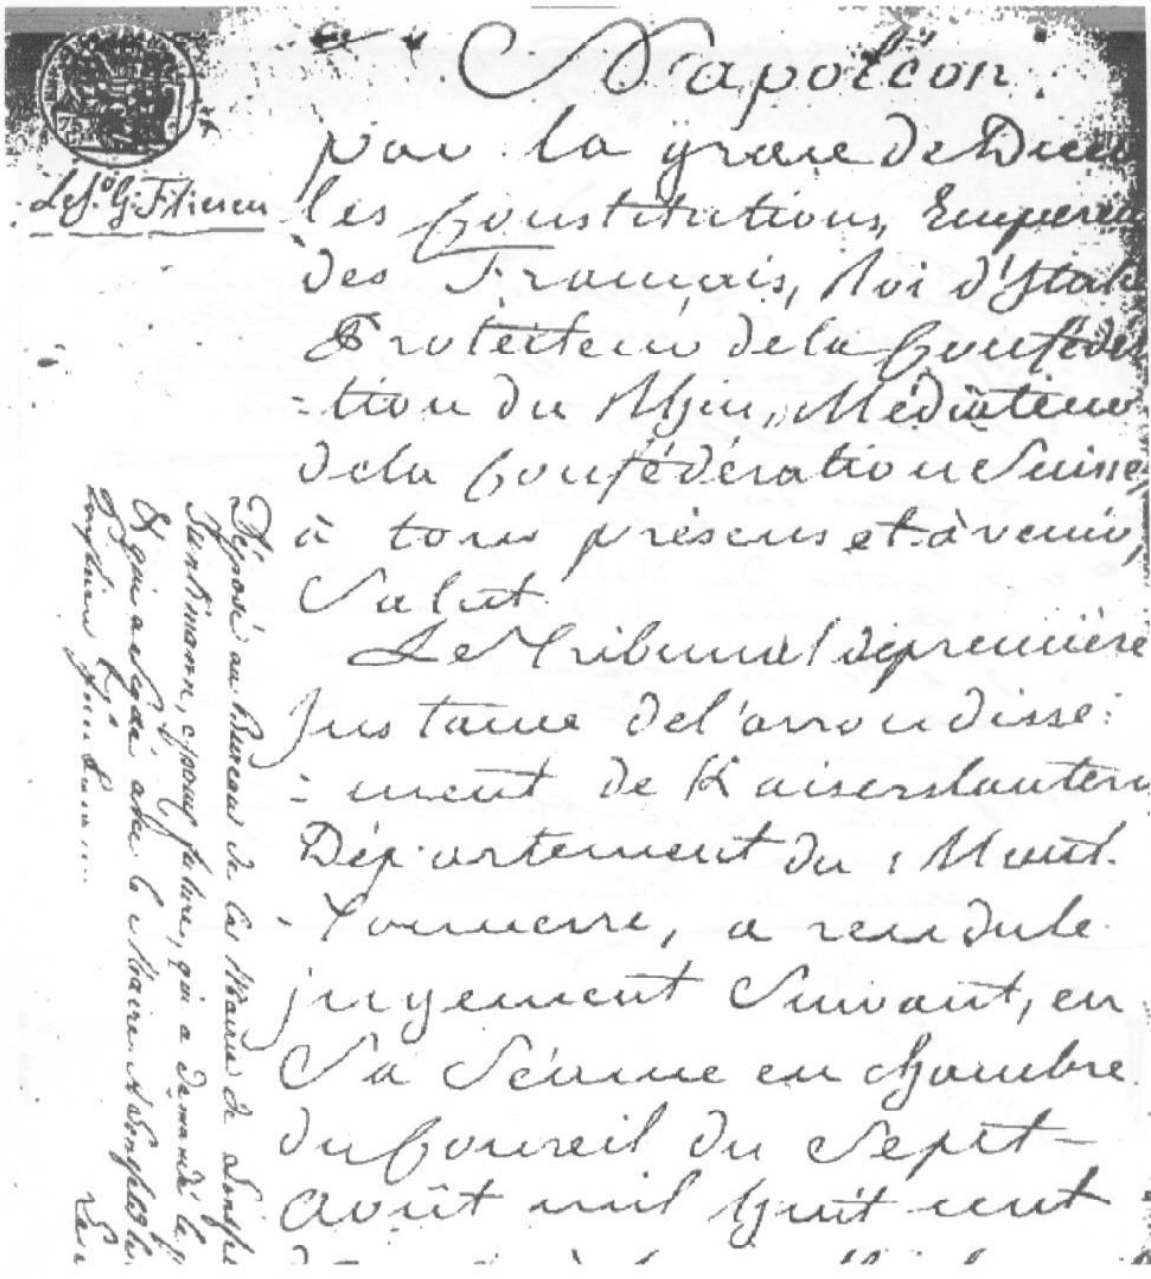 Napoléon
par la grace de Dieu
les Constitutions, Empereu
des Français, Roi d'Itali
Protecteur de la Confédér
-tion du Rhin, Médiateur
de la Confédération Suisse,
à tous présens et à venir,
Salut.
Le Tribunal de première
Instance de l'arrondisse:
:ment de Kaiserslautern
Département du Mont-
-Tonnerre, a rendu le
jugement Suivant, en
Sa Séance en chambre
du Conseil du Sept
août mil huit cent
Déposé au Bureau de la Mairie de
épouse future, qui a demandé le
& qui a avec le Maire